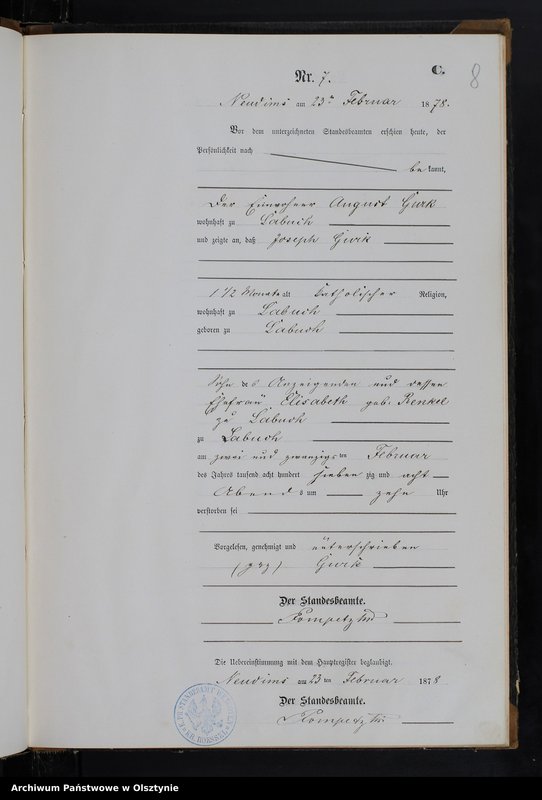 C.
8
Nr. 7.
Neudims am 23ten Februar 1878.
Vor dem unterzeichneten Standesbeamten erschien heute, der
Persönlichkeit nach
bekannt,
Der Einwohner August Gurk
wohnhaft zu Labuch
und zeigte an, daß Joseph Gurk
1 1/2 Monate alt katholischer Religion,
wohnhaft zu Labuch
geboren zu Labuch
Sohn des Anzeigenden und dessen
Ehefrau Elisabeth geb. Renkel
zu Labuch
zu Labuch
am zwei und zwanzigsten Februar
des Jahres tausend acht hundert siebenzig und acht
Abends um zehn Uhr
verstorben sei
Vorgelesen, genehmigt und unterschrieben
(gez) Gurk
Der Standesbeamte.
Die Uebereinstimmung mit dem Hauptregister beglaubigt.
Neudims am 23ten Februar 1878
Der Standesbeamte.
Archiwum Państwowe w Olsztynie